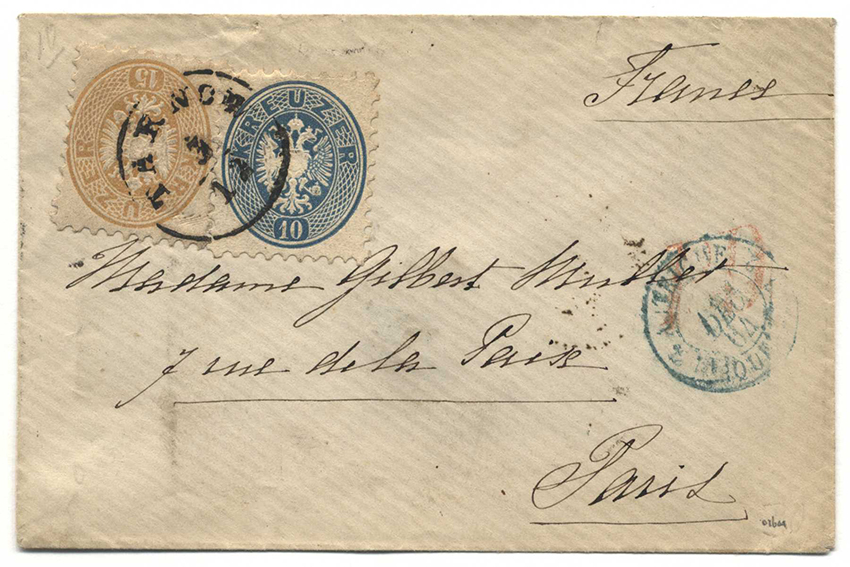 France
15
KREUZER
TARNOW
3
12
KREUZER
10
Madame Gilbert Muller
7 rue de la Paix
Paris
DEC
64